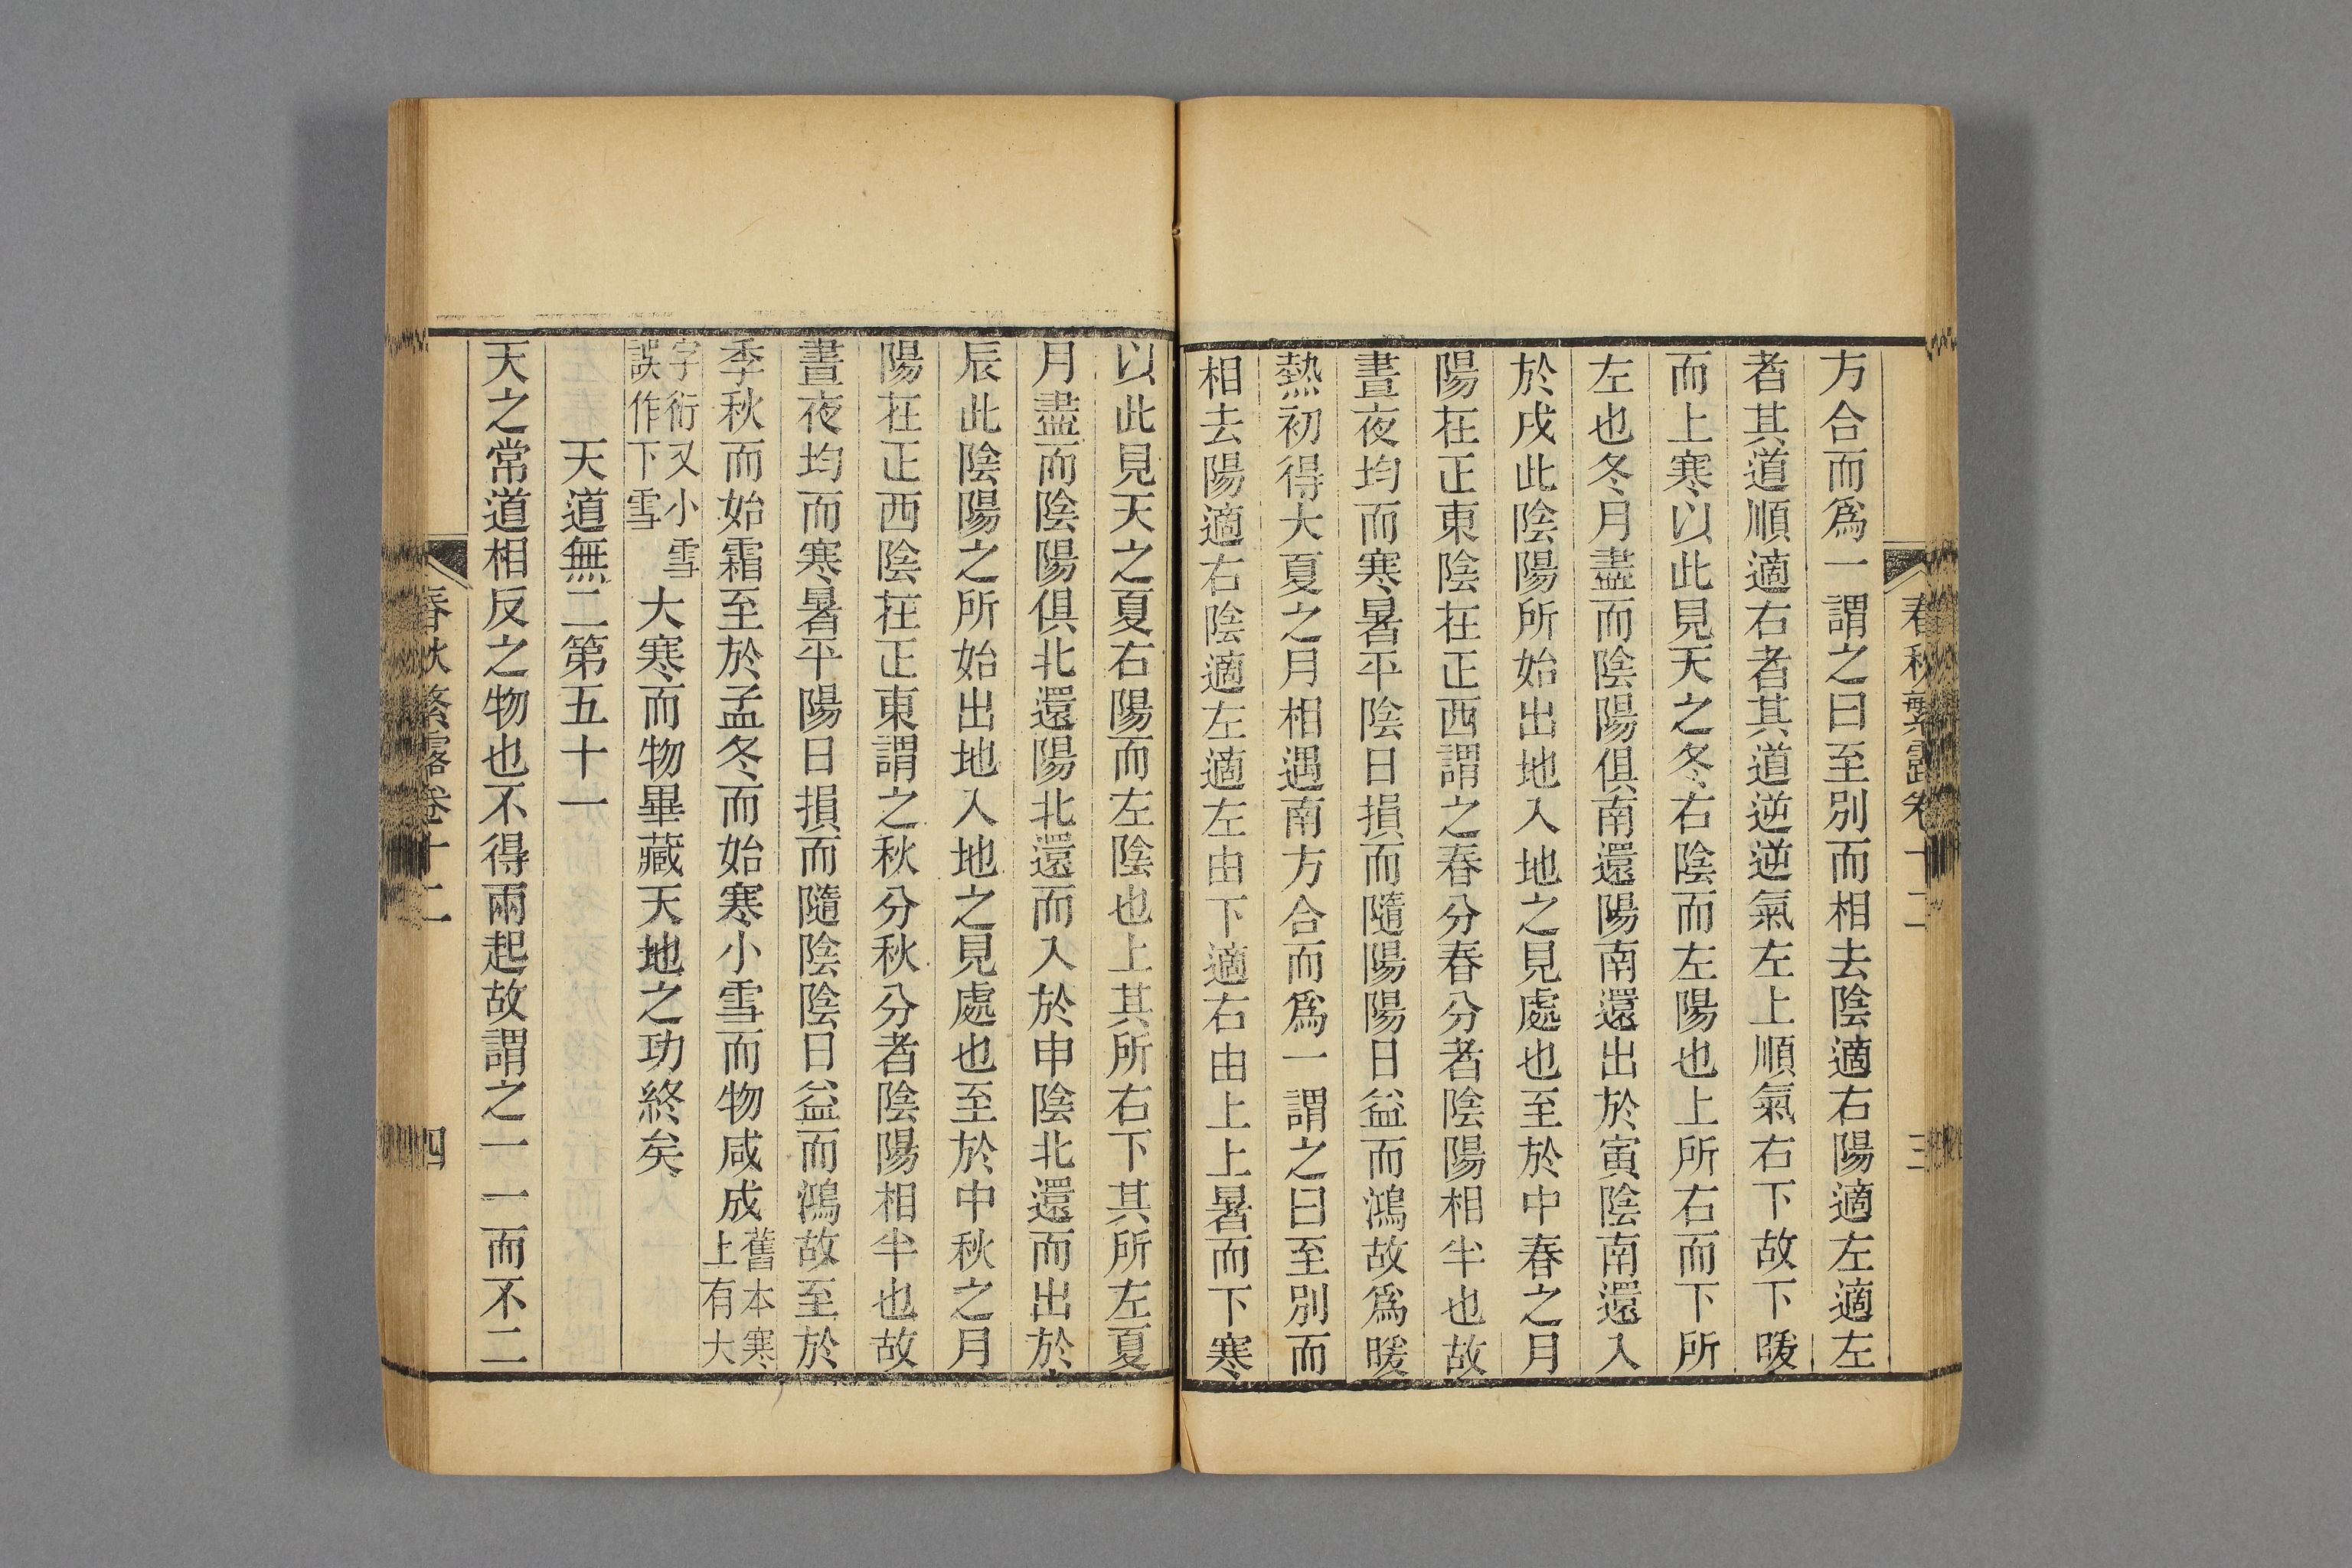 春秋繁露卷十二
三
方合而爲一謂之曰至別而相去陰適右陽適左適左
者其道順適右者其道逆逆氣左上順氣右下故下暖
而上寒以此見天之冬右陰而左陽也上所右而下所
左也冬月盡而陰陽俱南還陽南還出於寅陰南還入
於戌此陰陽所始出地入地之見處也至於中春之月
陽在正東陰在正西謂之春分春分者陰陽相半也故
晝夜均而寒暑平陰日損而隨陽陽日益而鴻故爲暖
熱初得大夏之月相遇南方合而爲一謂之曰至別而
相去陽適右陰適左適左由下適右由上上暑而下寒
以此見天之夏右陽而左陰也上其所右下其所左夏
月盡而陰陽俱北還陽北還而入於申陰北還而出於
辰此陰陽之所始出地入地之見處也至於中秋之月
陽在正西陰在正東謂之秋分秋分者陰陽相半也故
晝夜均而寒暑平陽日損而隨陰陰日益而鴻故至於
季秋而始霜至於孟冬而始寒小雪而物咸成舊本寒上有大
字衍又小雪誤作下雪大寒而物畢藏天地之功終矣
天道無二第五十一
天之常道相反之物也不得兩起故謂之一一而不二
春秋繁露卷十二
四